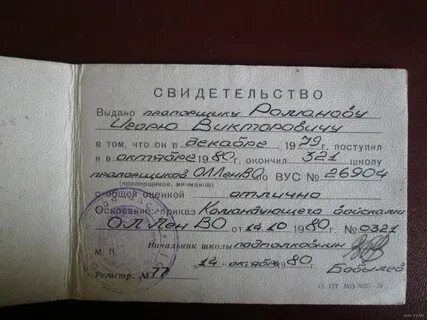 СВИДЕТЕЛЬСТВО
Выдано прапорщику Романову
Игорю Викторовичу
в том, что он в декабре 1979 г. поступил
и в октябре 1980 г. окончил 321 школу
прапорщиков ОЛЛенВО по ВУС № 26904
(прапорщиков, мичманов)
с общей оценкой отлично
Основание: приказ Командующего войсками
ОЛ Лен ВО от 14.10 1980 г. № 0321
Начальник школы подполковник
М. П.
"14" октября 80 Бобылев
Регистр. № 77